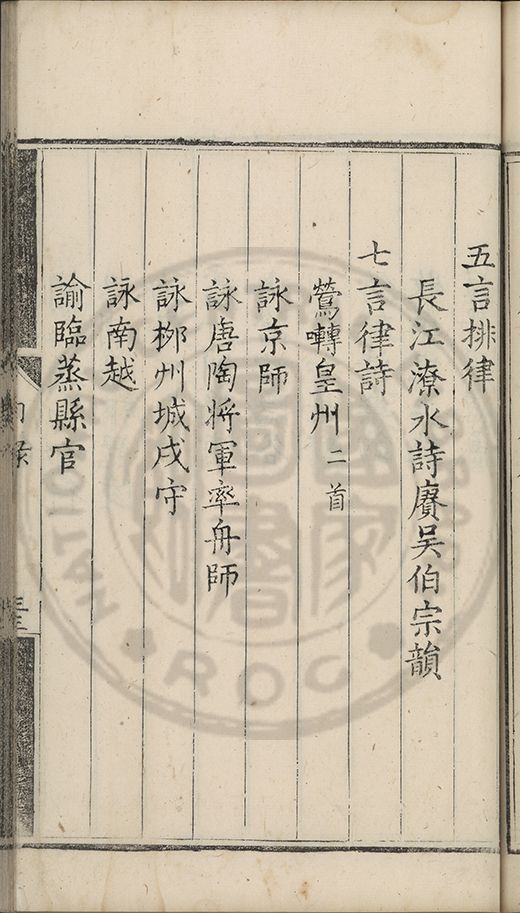 五言排律
長江潦水詩賡吳伯宗韻
七言律詩
鶯囀皇州二首
詠京師
詠唐陶將軍率舟師
詠郴州城戍守
詠南越
諭臨蒸縣官